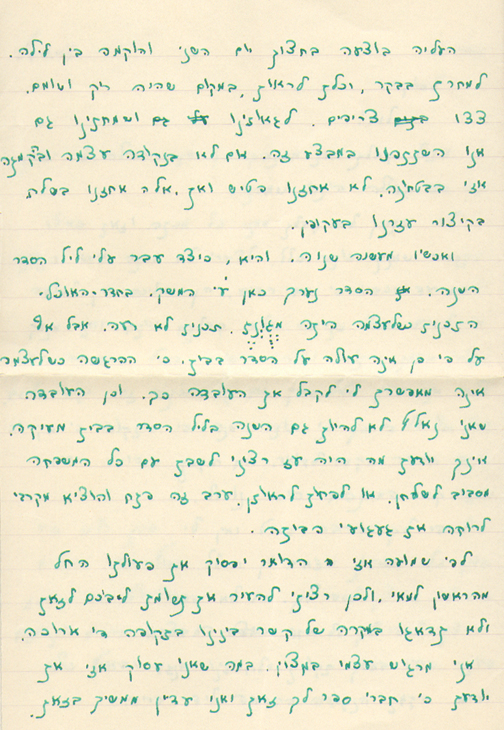 העליה בוצעה בחצות יום השני והוקמה בין לילה.
למחרת בבקר, יכולת לראות, במקום שהיה ריק ושומם.
צצו צריפים. לגאוותנו גם ושמחתינו גם
אנו השתתפנו במבצע זה. אם לא בנקודה עצמה ובהקמתה
אזי בבטחונה. לא אחזנו פטיש ואת, אלה אחזנו בפלדת
בקיצור עזרנו בעקיפין.
ועכשיו מעשה שהיה והיא, כיצד עבר עלי ליל הסדר
השנה. הסדר נערך כאן ע"י המשק. בחדר-האוכל.
התכנית כשלעצמה היתה מגוונת. תכנית לא רעה. אבל אף
על פי כן אינה עולה על הסדר בבית. כי ההרגשה כשלעצמה
אינה מאפשרת לי לקבל את העובדה כך. וכן העובדה
שאני נאלץ לא להיות גם השנה בליל הסדר בבית מעיקה.
אינך יודעת מה היה עז רצוני לשבת עם כל המשפחה
מסביב לשולחן. או לפחות לראותן. ערב זה פתח והוציא מקרבי
לרוחה את געגועי הביתה.
לפי שמועה אזי הדואר יפסיק את פעולתו החל
מהראשון למאי, ולכן רציתי להעיר את תשומת ליבכם לזאת
ולא תדאגו במקרה של קשר בינינו בתקופה די ארוכה.
אני מרגיש עצמי במצוין. במה שאני עסוק אזי את
יודעת כי חברי ספר לך זאת ואני עדיין ממשיך בזאת.